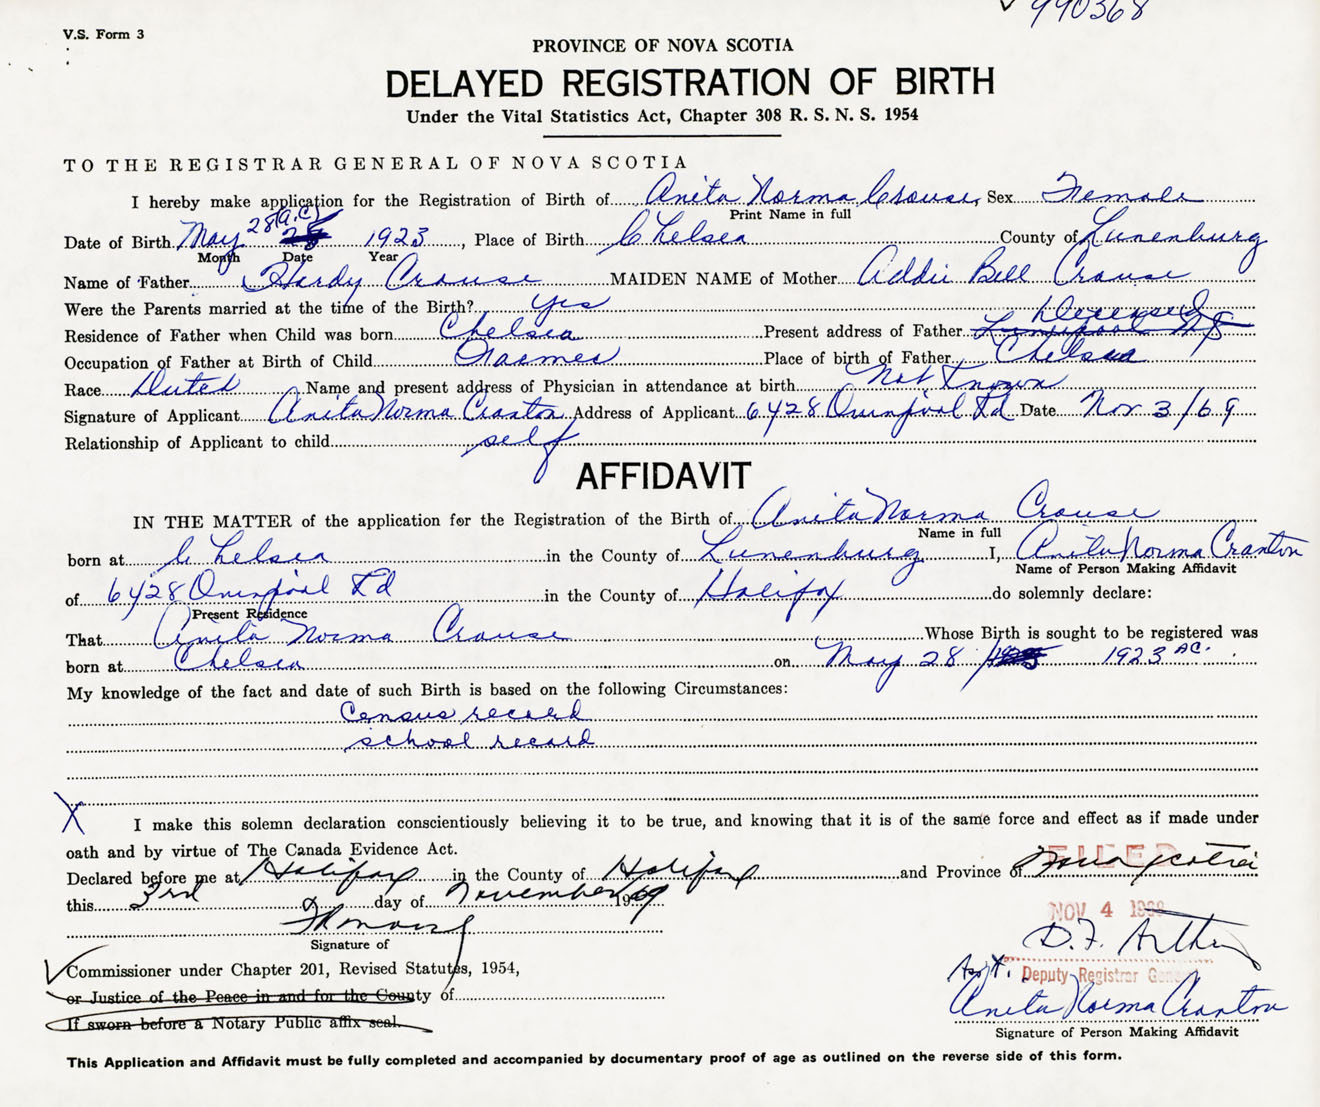 990368
V.S. Form 3
PROVINCE OF NOVA SCOTIA
DELAYED REGISTRATION OF BIRTH
Under the Vital Statistics Act, Chapter 308 R. S. N. S. 1954
TO THE REGISTRAR GENERAL OF NOVA SCOTIA
I hereby make application for the Registration of Birth of Anita Norma Crouse Sex Female
Print Name in full
Date of Birth May 28 (A.C) 28 1923, Place of Birth Chelsea County of Lunenburg
Month Date Year
Name of Father Hardy Crouse MAIDEN NAME of Mother Addie Bell Crouse
Were the Parents married at the time of the Birth? yes
Deceased
Residence of Father when Child was born Chelsea Present address of Father Liverpool N S
Occupation of Father at Birth of Child Farmer Place of birth of Father Chelsea
Race Duted Name and present address of Physician in attendance at birth Not Known
Signature of Applicant Anita Norma Cranton Address of Applicant 6428 Quinpool Rd Date Nov 3/69
Relationship of Applicant to child self
AFFIDAVIT
IN THE MATTER of the application for the Registration of the Birth of Anita Norma Crouse
Name in full
born at Chelsea in the County of Lunenburg I, Anita Norma Cranton
Name of Person Making Affidavit
of 6428 Quinpool Rd in the County of Halifax do solemnly declare:
Present Residence
That Anita Norma Crouse Whose Birth is sought to be registered was
born at Chelsea on May 28 1923 AC.
My knowledge of the fact and date of such Birth is based on the following Circumstances:
Census record
school record
X
I make this solemn declaration conscientiously believing it to be true, and knowing that it is of the same force and effect as if made under
oath and by virtue of The Canada Evidence Act.
FILED
Declared before me at Halifax in the County of Halifax and Province of Nova Scotia
this 3rd day of November 1969
NOV 4 1969
D. F. Arthur
Signature of
Commissioner under Chapter 201, Revised Statutes, 1954,
Ass't. Deputy Registrar General
or Justice of the Peace in and for the County of
Anita Norma Cranton
If sworn before a Notary Public affix seal.
Signature of Person Making Affidavit
This Application and Affidavit must be fully completed and accompanied by documentary proof of age as outlined on the reverse side of this form.